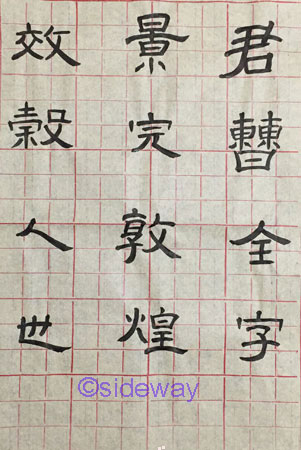 君曹全字
景完敦煌
效穀人也
©sideway